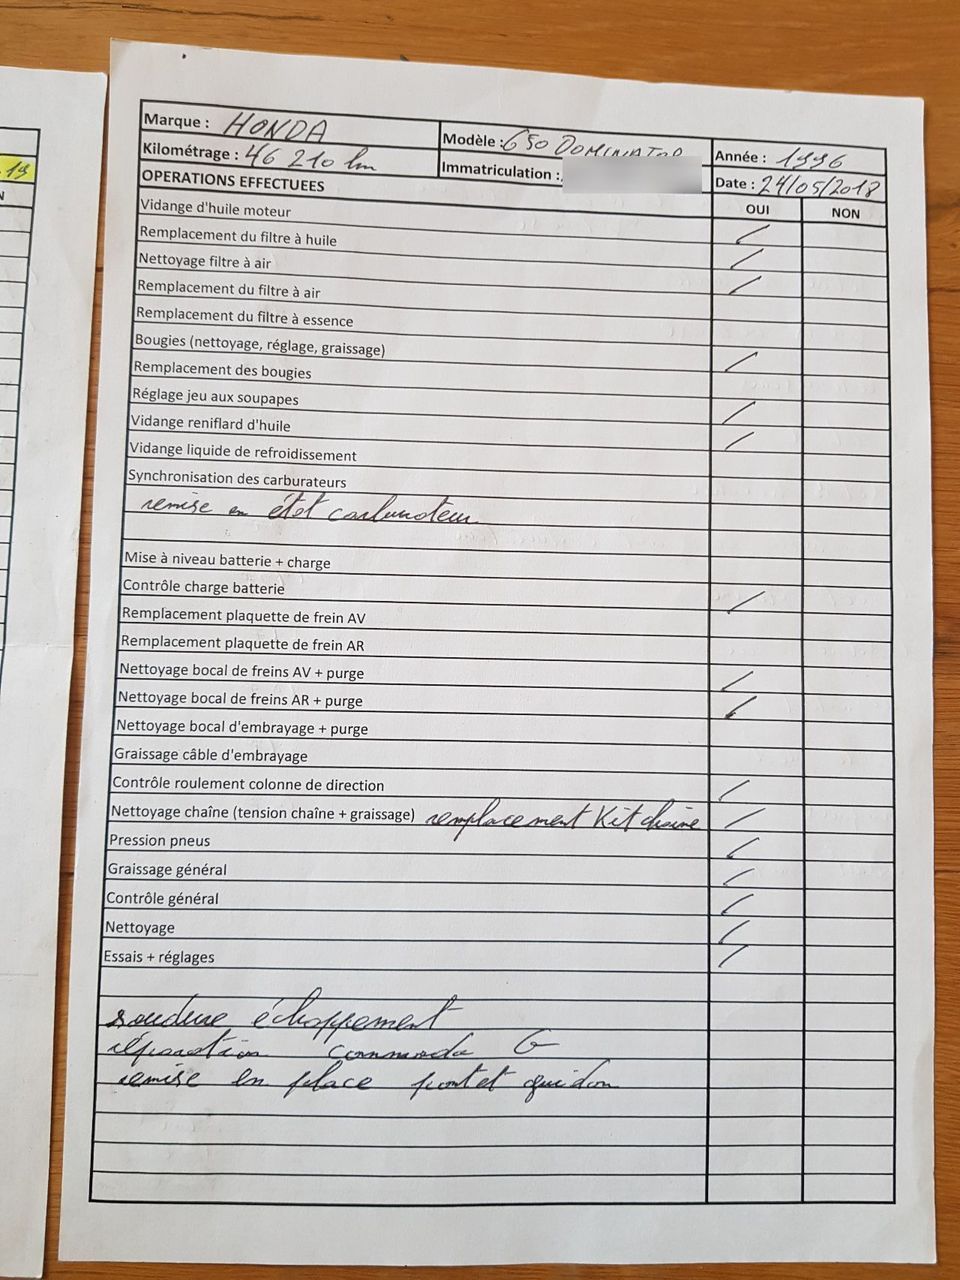 19
N
Marque : HONDA
Modèle : 650 DOMINATOR
Année : 1996
Kilométrage : 46 210 km
Immatriculation :
Date : 24/05/2018
OPERATIONS EFFECTUEES
OUI
NON
Vidange d'huile moteur
Remplacement du filtre à huile
Nettoyage filtre à air
Remplacement du filtre à air
Remplacement du filtre à essence
Bougies (nettoyage, réglage, graissage)
Remplacement des bougies
Réglage jeu aux soupapes
Vidange reniflard d'huile
Vidange liquide de refroidissement
Synchronisation des carburateurs
remise en état carburateur
Mise à niveau batterie + charge
Contrôle charge batterie
Remplacement plaquette de frein AV
Remplacement plaquette de frein AR
Nettoyage bocal de freins AV + purge
Nettoyage bocal de freins AR + purge
Nettoyage bocal d'embrayage + purge
Graissage câble d'embrayage
Contrôle roulement colonne de direction
Nettoyage chaîne (tension chaîne + graissage) remplacement Kit chaine
Pression pneus
Graissage général
Contrôle général
Nettoyage
Essais + réglages
soudure échappement
réparation commodo G
remise en place pontet guidon